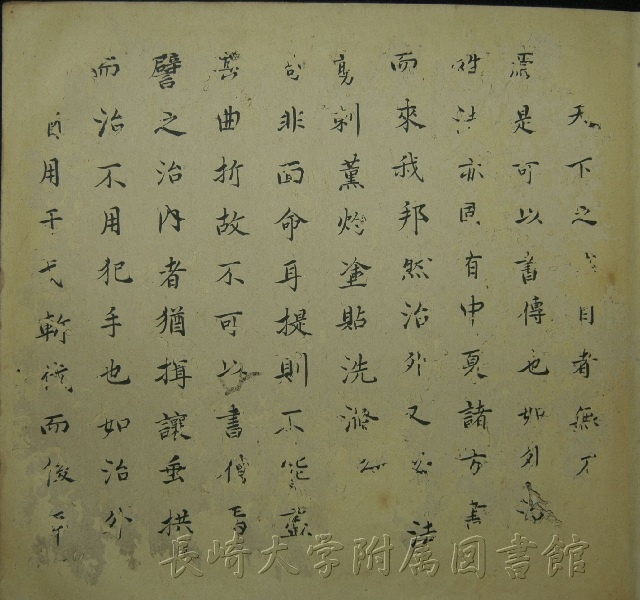 天下之 目者無
是可以書傳也如外治
法亦固有中夏諸方書
而來我邦然治外又 法
剪剃薰烙塗貼洗滌
非面命耳提則不能
其曲折故不可以書傳焉
譬之治內者猶揖讓垂拱
而治不用犯手也如治外
用干戈斬 而後
長崎大学附属図書館